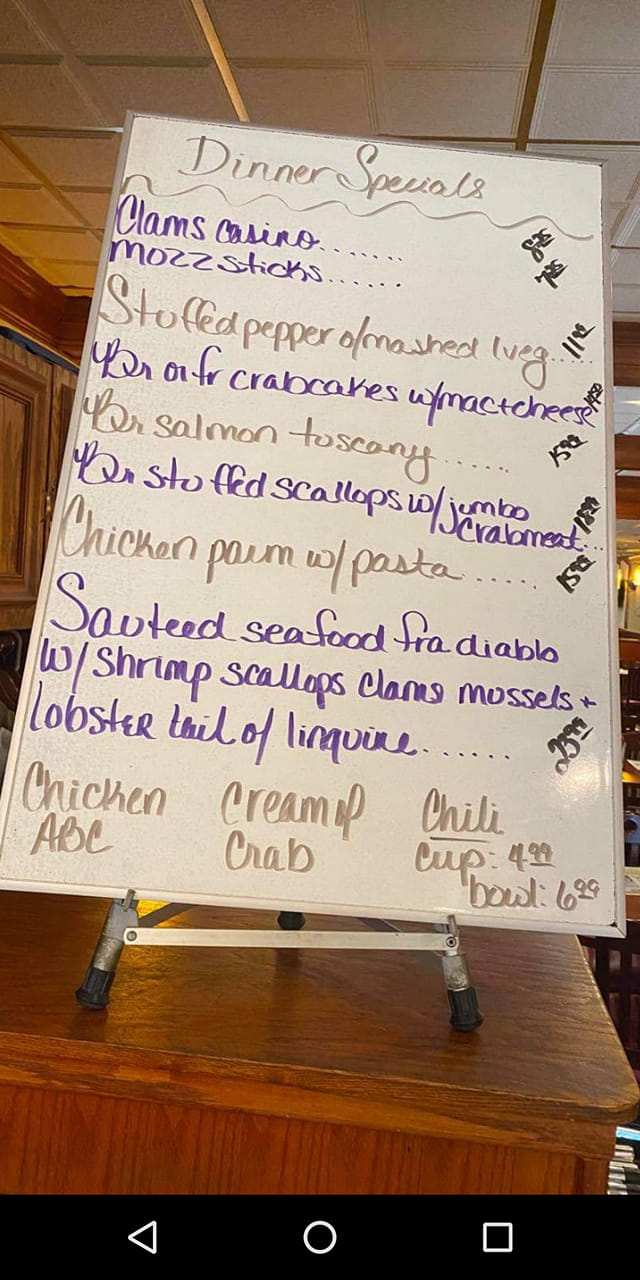 Dinner Specials
Clams casino.......
Mozz sticks......
Stuffed pepper o/mashed 1 veg.....
Br or fr crabcakes w/mac+cheese
Br salmon tuscany...... 15
Br stuffed scallops w/jumbo
crabmeat...
Chicken parm w/pasta ..... 15
Sauteed seafood fra diablo
w/ shrimp scallops clams mussels +
lobster tail o/ linguine....... 23
Chicken Cream of Chili
ABC Crab cup: 4.99
bowl: 6.99